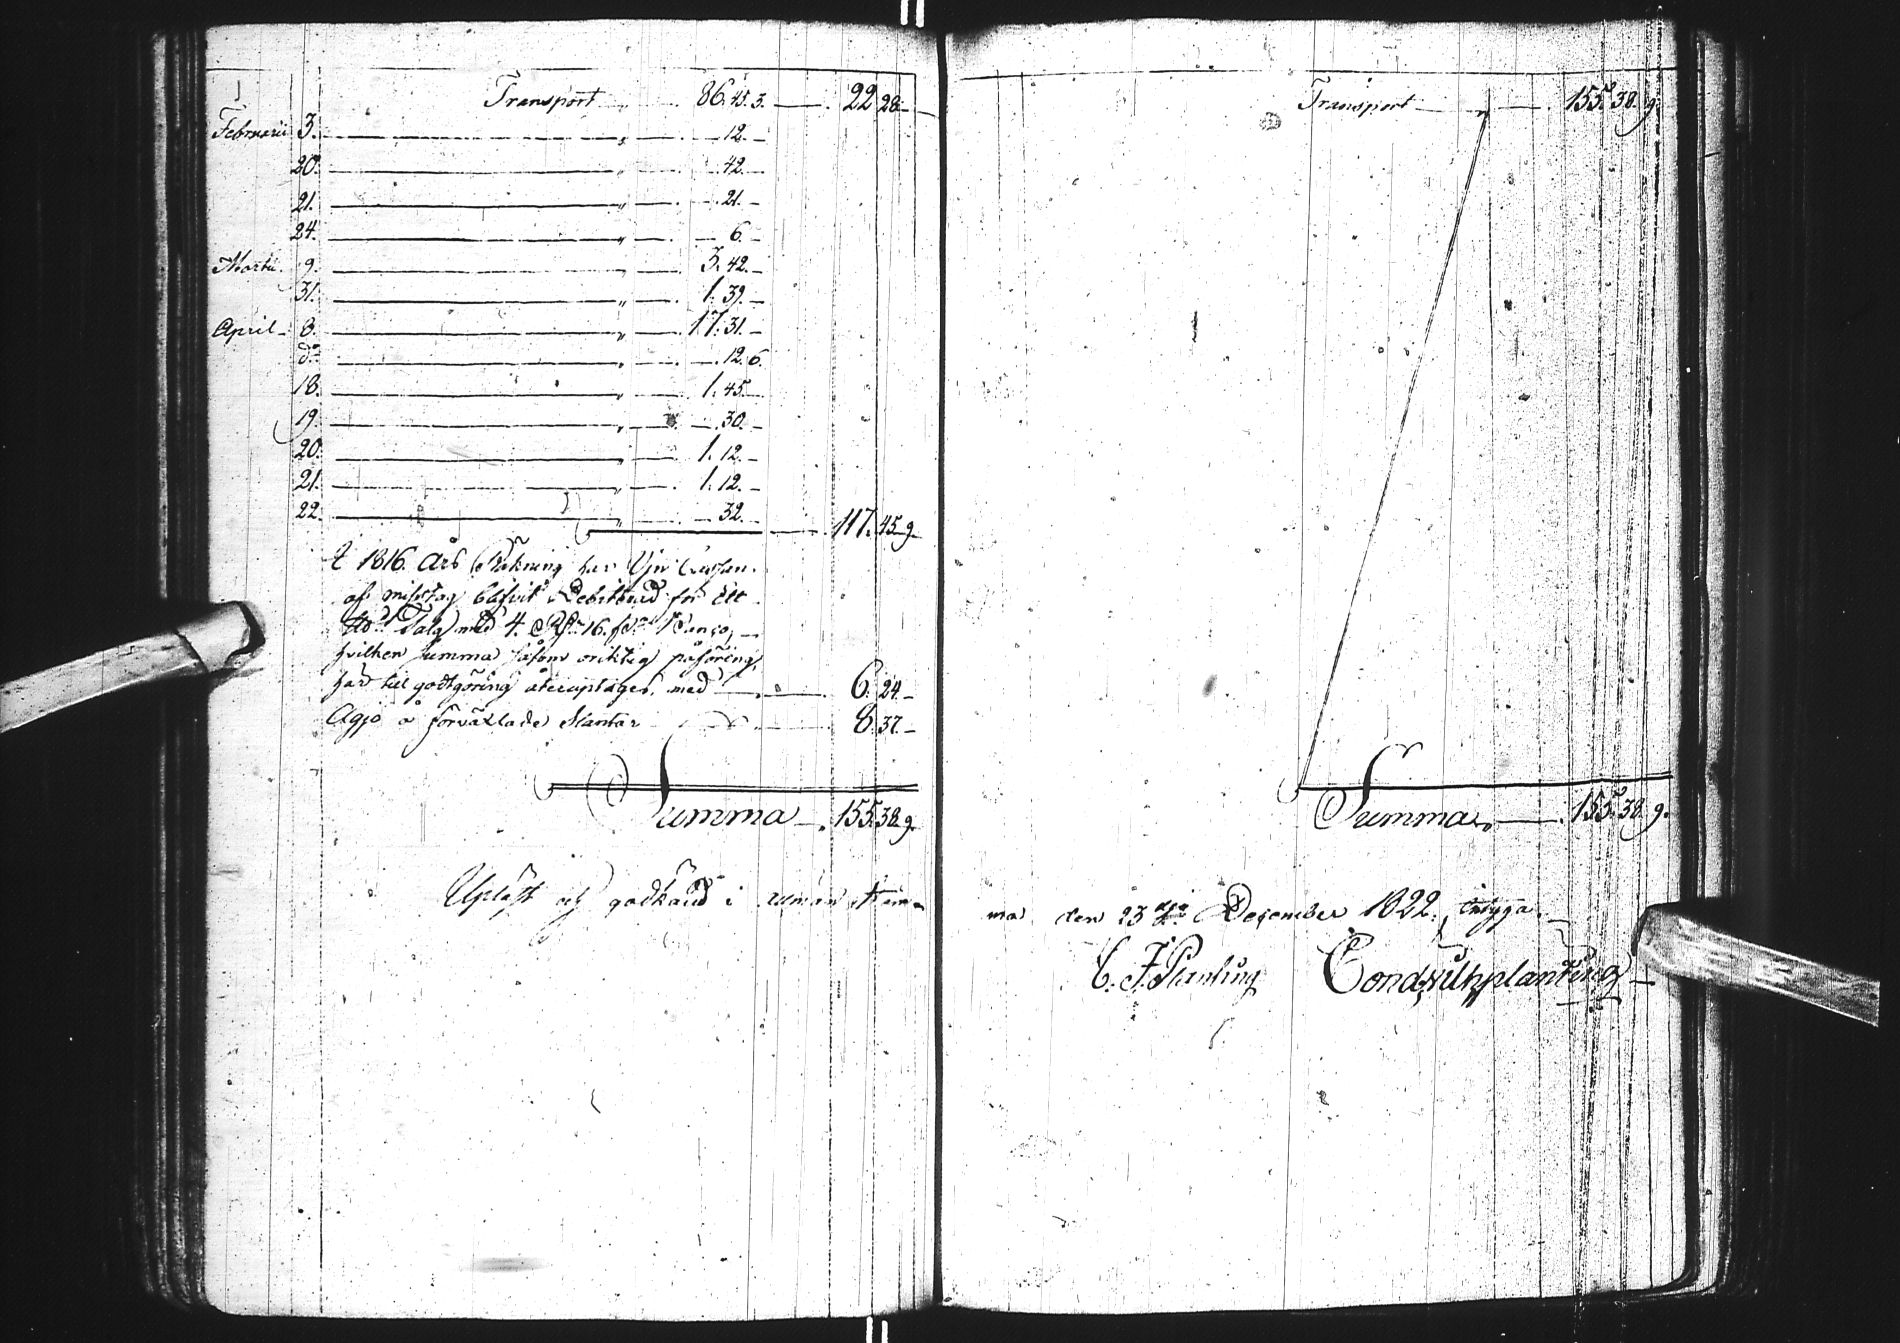 Transport „ — 86. 45. 3. — 22 28. –
Februarii 3. — „ — 12. –
20. — „ — 42. –
21. — „ — 21. –
24. — „ — 6. –
Martii 9. — „ — 3. 42. –
31. — „ — 1. 39. –
April 8. — „ — 17. 31. –
do — „ — 12. 6.
18. — „ — 1. 45. –
19. — „ — 30. –
20. — „ — 1. 12. –
21. — „ — 1. 12. –
22. — „ — 32. – — 117. 45. 9.
1816. Års Räkning har
af misstag blifvit Debiterad för ett
Talg med 4. Rdr 16. s. Banco,
hvilken summa såsom oriktig påföring,
här till godtgöring återuptages, med — 6. 24. –
Agio å förväxlade Slantar — 8. 37. –
Summa — 155. 38. 9.
Upläst och godkänd i
Transport — 155. 38. 9.
Summa — 155. 38. 9.
ma den 23 December 1822, intyga
C. F. Planting